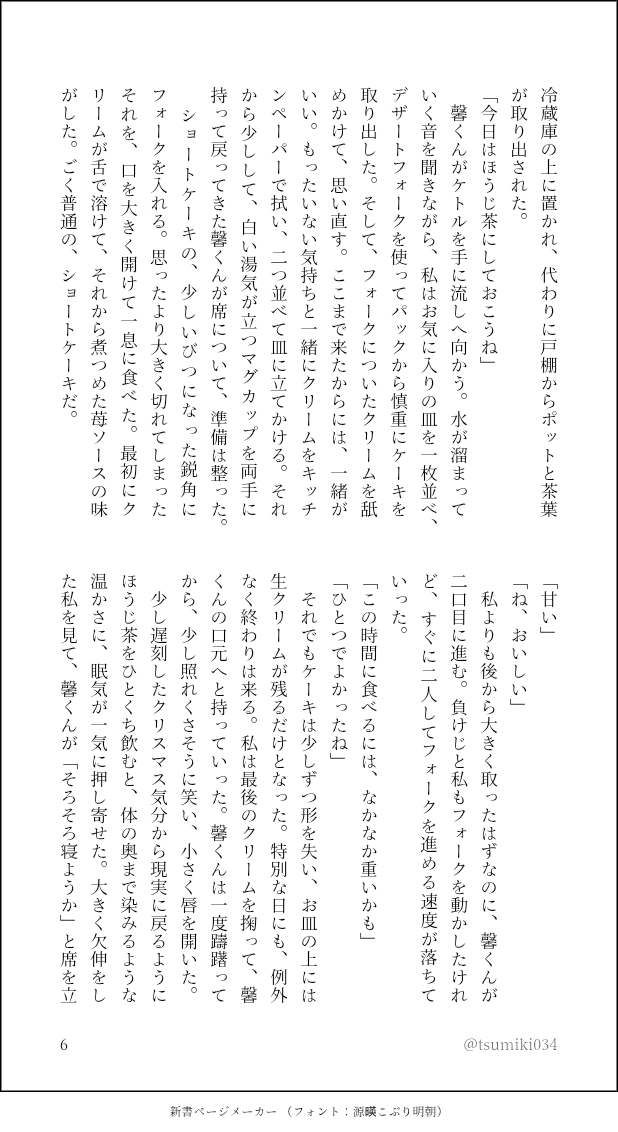 冷蔵庫の上に置かれ、代わりに戸棚からポットと茶葉
が取り出された。
「今日はほうじ茶にしておこうね」
　馨くんがケトルを手に流しへ向かう。水が溜まって
いく音を聞きながら、私はお気に入りの皿を一枚並べ、
デザートフォークを使ってパックから慎重にケーキを
取り出した。そして、フォークについたクリームを舐
めかけて、思い直す。ここまで来たからには、一緒が
いい。もったいない気持ちと一緒にクリームをキッチ
ンペーパーで拭い、二つ並べて皿に立てかける。それ
から少しして、白い湯気が立つマグカップを両手に
持って戻ってきた馨くんが席について、準備は整った。
　ショートケーキの、少しいびつになった鋭角に
フォークを入れる。思ったより大きく切れてしまった
それを、口を大きく開けて一息に食べた。最初にク
リームが舌で溶けて、それから煮つめた苺ソースの味
がした。ごく普通の、ショートケーキだ。
「甘い」
「ね、おいしい」
　私よりも後から大きく取ったはずなのに、馨くんが
二口目に進む。負けじと私もフォークを動かしたけれ
ど、すぐに二人してフォークを進める速度が落ちて
いった。
「この時間に食べるには、なかなか重いかも」
「ひとつでよかったね」
　それでもケーキは少しずつ形を失い、お皿の上には
生クリームが残るだけとなった。特別な日にも、例外
なく終わりは来る。私は最後のクリームを掬って、馨
くんの口元へと持っていった。馨くんは一度躊躇って
から、少し照れくさそうに笑い、小さく唇を開いた。
　少し遅刻したクリスマス気分から現実に戻るように
ほうじ茶をひとくち飲むと、体の奥まで染みるような
温かさに、眠気が一気に押し寄せた。大きく欠伸をし
た私を見て、馨くんが「そろそろ寝ようか」と席を立
6
@tsumiki034
新書ページメーカー（フォント：源暎こぶり明朝）